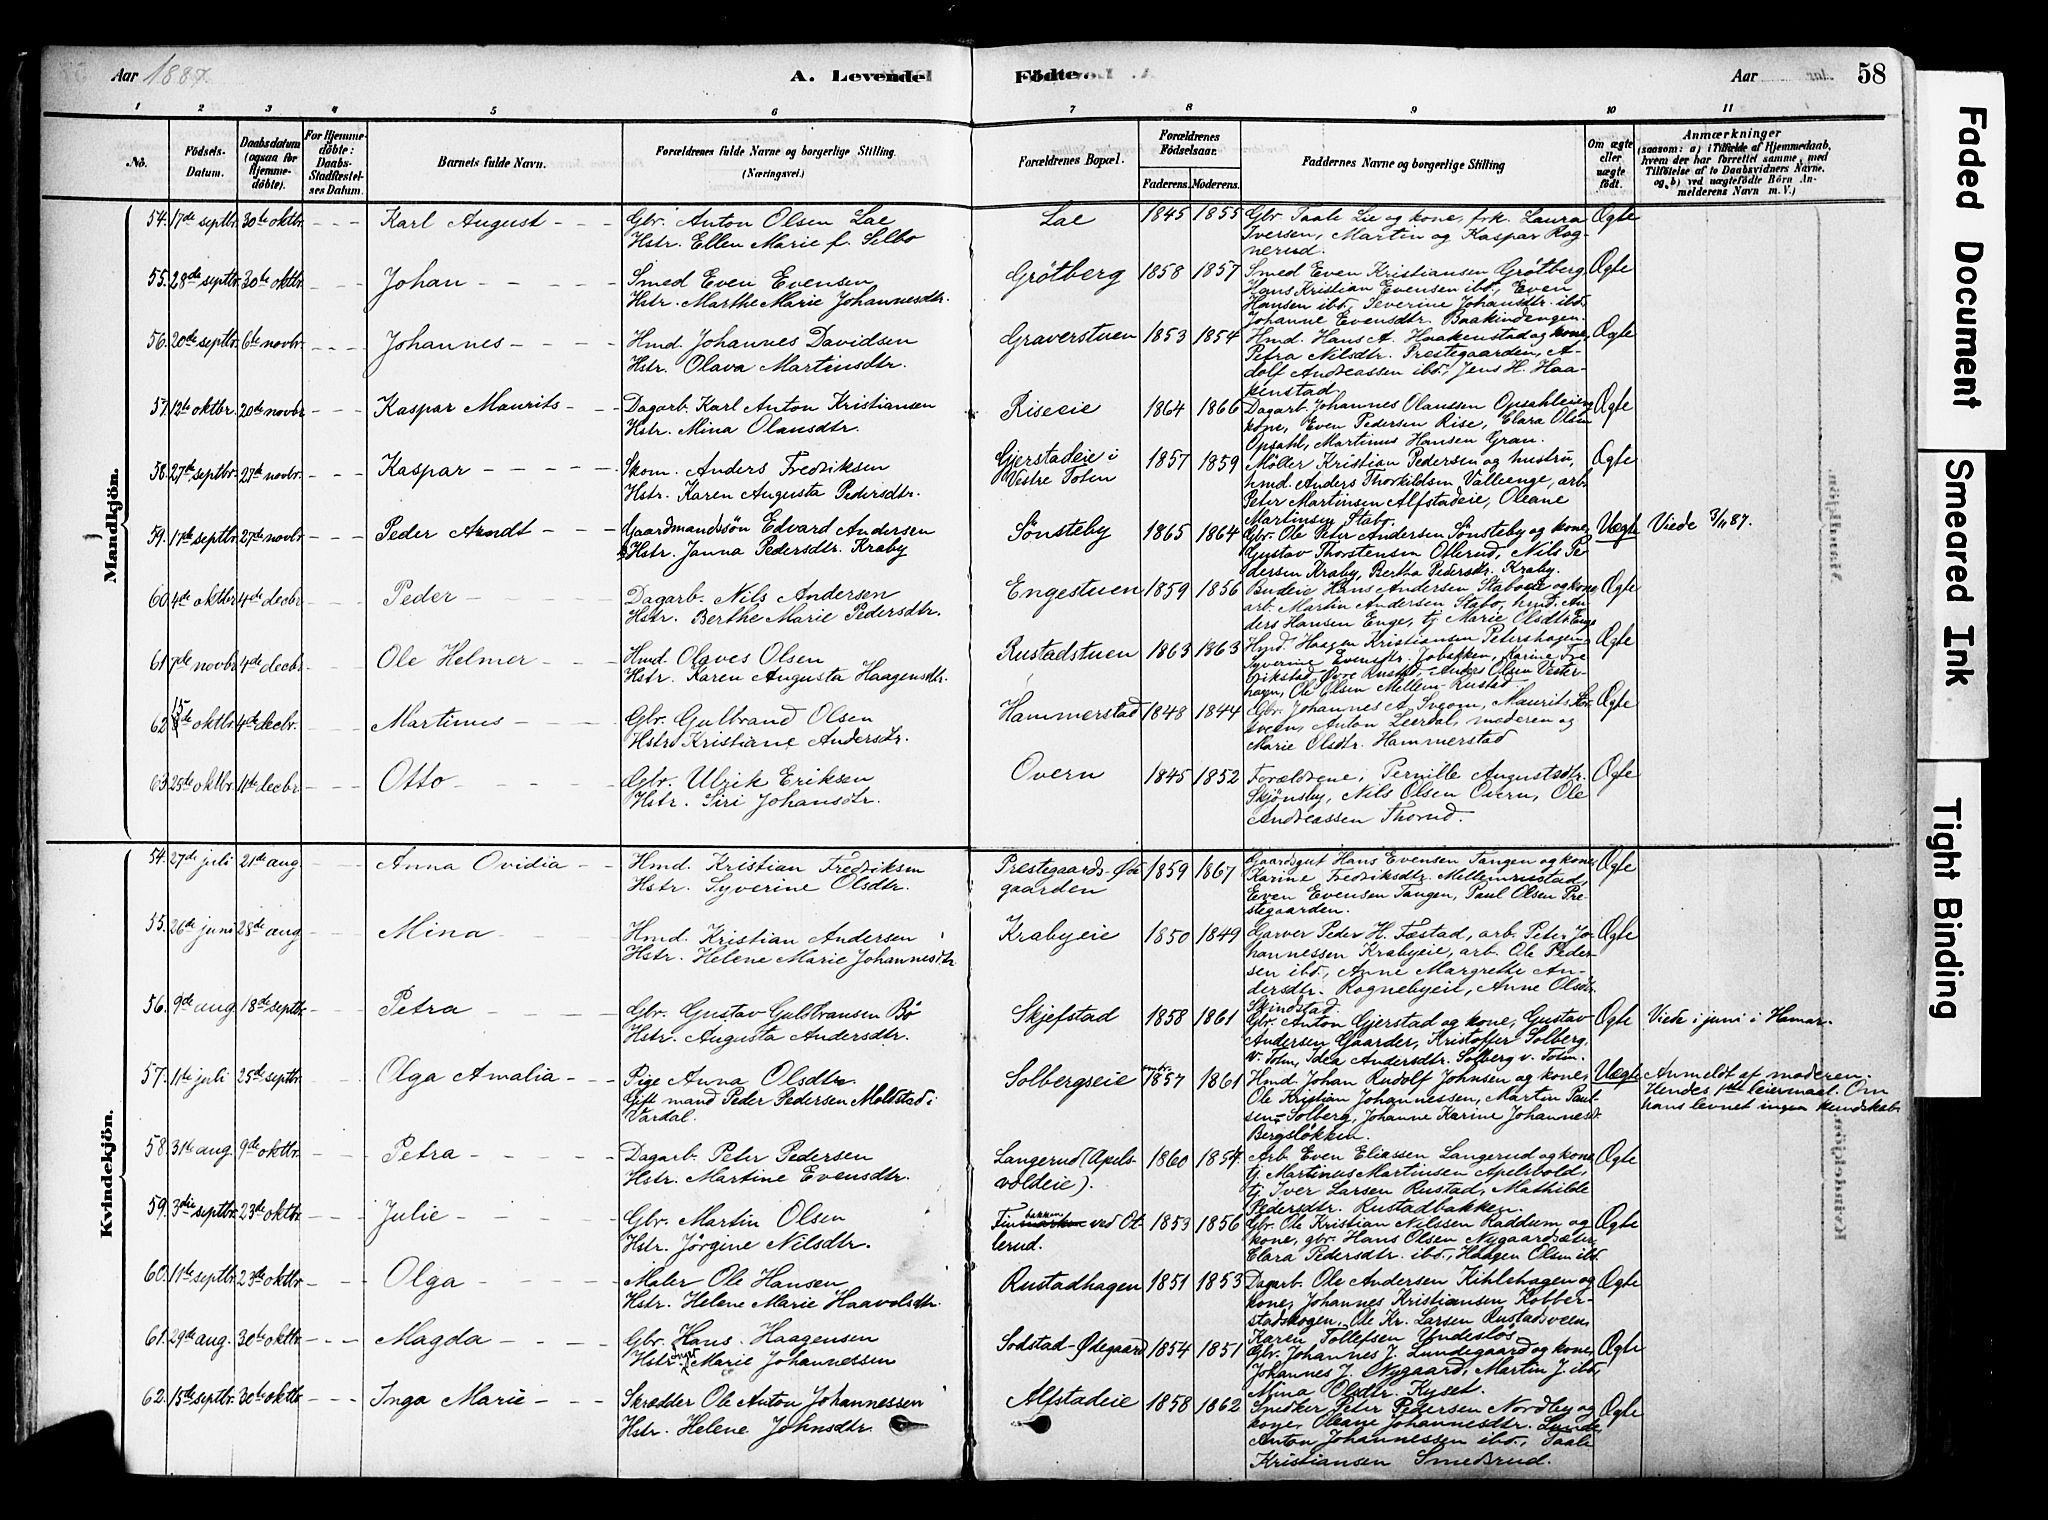 Aar 1887.
A. Levende Födte.
Aar
58
1 2 3 4 5 6 7 8 9 10 11
No.
Födsels-Datum.
Daabsdatum (ogsaa for Hjemmedöbte).
For Hjemmedöbte: Daabs-Stadfæstelses Datum.
Barnets fulde Navn.
Forældrenes fulde Navne og borgerlige Stilling.
(Næringsvei.)
Forældrenes Bopæl.
Forældrenes Födselsaar.
Faderens. Moderens.
Faddernes Navne og borgerlige Stilling
Om ægte eller uægte födt.
Anmærkninger
(saasom: a) i Tilfælde af Hjemmedaab,
hvem der har forrettet samme, med
Tilföielse af to Daabsvidners Navne,
og b) ved uægtefödte Börn Anmelderens Navn m. V.)
Mandkjön.
54. 17de septbr. 30te oktbr. Karl August Gbr. Anton Olsen Lae
Hstr. Ellen Marie f. Selbo
Lae 1845 1855 Gbr. Taale Lie og kone, frk. Laura
Iversen, Martin og Kaspar Rognerud.
Ægte
55. 28de septbr. 30te oktbr. Johan Smed Even Evensen
Hstr. Marthe Marie Johannesdtr.
Grötberg 1858 1857 Smed Even Kristiansen Grötberg,
Hans Kristian Evensen ibd., Even
Hansen ibd., Severine Johansdtr. ibd.
Johanne Evensdtr. Baakindengen.
Ægte
56. 20de septbr. 6te novbr. Johannes Hmd. Johannes Davidsen
Hstr. Olava Martinsdtr.
Graverstuen 1853 1854 Hmd. Hans A. Haakenstad og kone,
Petra Nilsdtr. Prestegaarden, Adolf
Andreassen ibd., Jens H. Haakenstad.
Ægte
57. 12te oktbr. 20de novbr. Kaspar Maurits Dagarb. Karl Anton Kristiansen
Hstr. Mina Olausdtr.
Riseeie 1864 1866 Dagarb. Johannes Olaussen Opsahleie,
kone, Even Pedersen Rise, Clara Olsen
Opsahl, Martinus Hansen Gran.
Ægte
58. 27de septbr. 27de novbr. Kaspar Skom. Anders Fredriksen
Hstr. Karen Augusta Pedersdtr.
Gjerstadeie i Vestre Toten 1857 1859 Møller Kristian Pedersen og hustru,
hmd. Anders Thorkildsen Valleenge, arb.
Peter Martinsen Alfstadeie, Oleane
Martinsen Stabo.
Ægte
59. 17de septbr. 27de novbr. Peder Arndt Gaardmandssön Edvard Andersen
Hstr. Janna Pedersdtr. Kraby
Sönsteby 1865 1864 Gbr. Ole Peter Andersen Sönsteby og kone,
Gustav Thorstensen Otlerud, Nils Pedersen
Kraby, Bertha Pedersdtr. Kraby.
Uægte Viede 3/11 87.
60. 4de oktbr. 4de decbr. Peder Dagarb. Nils Andersen
Hstr. Berthe Marie Pedersdtr.
Engestuen 1859 1856 Budeie Hans Andersen Staboeie og kone,
arb. Martin Andersen Stabo, hmd. Anders
Hansen Enge, tj. Marie Olsdtr. Enge
Ægte
61. 7de novbr. 4de decbr. Ole Helmer Hmd. Olaves Olsen
Hstr. Karen Augusta Haagensdtr.
Rustadstuen 1863 1863 Hmd. Haagen Kristiansen Petershagen,
Syverine Evensdtr. Jobakken, Karine
Eikstad, Øvre Rustad, Anders Olsen Vesterhagen,
Ole Olsen Mellem-Rustad
Ægte
62. 15de oktbr. 4de decbr. Martinus Gbr. Gulbrand Olsen
Hstr. Kristiane Andersdtr.
Hammerstad 1848 1844 Gbr. Johannes A. Sveom, Maurits
Anton Leerdal, moderen og
Marie Olsdtr. Hammerstad
Ægte
63. 25de oktbr. 11te decbr. Otto Gbr. Ulrik Eriksen
Hstr. Siri Johansdtr.
Overn 1845 1852 Forældrene, Pernille Augustsdtr.
Skjönsby, Nils Olsen Overn, Ole
Andreassen Thorud.
Ægte
Kvindekjön.
54. 27de juli 21de aug. Anna Ovidia Hmd. Kristian Fredriksen
Hstr. Syverine Olsdtr.
Prestegaards-Ødegaarden 1859 1867 Gaardsgut Hans Evensen Tangen og kone,
Karine Fredriksdtr. Mellemrustad,
Even Evensen Tangen, Paul Olsen Prestegaarden.
Ægte
55. 26de juni 28de aug. Mina Hmd. Kristian Andersen
Hstr. Helene Marie Johannesdtr
Krabyeie 1850 1849 Garver Peder H. Fæstad, arb. Peter Johannessen
Krabyeie, arb. Ole Pedersen
ibd., Anne Margrethe Andersdtr.
Rognebyeie, Anne Olsdtr.
Skindstad.
Ægte
56. 9de aug. 18de septbr. Petra Gbr. Gustav Gulbransen Bö
Hstr. Augusta Andersdtr.
Skjefstad 1858 1861 Gbr. Anton Gjerstad og kone, Gustav
Andersen Gaarder, Kristoffer Solberg,
V. Totn, Idea Andersdtr. Solberg v. Totn.
Ægte Viede i juni i Hamar.
57. 11te juli 25de septbr. Olga Amalia Pige Anna Olsdtr
Gift mand Peder Pedersen Molstad i
Vardal.
Solbergseie 1857 1861 Hmd. Johan Rudolf Johnsen og kone,
Ole Kristian Johannessen, Martin Paulsen-Solberg,
Johanne Karine Johannesdtr.
Bergslökken.
Uægte Anmeldt af moderen.
Hendes 1ste leiermaal. Om
hans levnet ingen kundskab.
58. 31te aug. 9de oktbr. Petra Dagarb. Peter Pedersen
Hstr. Martine Evensdtr.
Langerud (Apelsvoldeie). 1860 1854 Arb. Even Eliassen Langerud og kone,
tj. Martinus Martinsen Apelsvold,
tj. Iver Larsen Rustad, Mathilde
Pedersdtr. Rustadbakken.
Ægte
59. 3die septbr. 23de oktbr. Julie Gbr. Martin Olsen
Hstr. Jörgine Nilsdtr.
Finbakken ved Otlerud. 1853 1856 Gbr. Ole Kristian Nilssen Raddum og
kone, gbr. Hans Olsen Nygaardsæter,
Clara Pedersdtr. ibd., Haagen Olsen ibd.
Ægte
60. 11te septbr. 23de oktbr. Olga Maler Ole Hansen
Hstr. Helene Marie Haavolsdtr.
Rustadhagen 1851 1853 Dagarb. Ole Andersen Kihlehagen og
kone, Johannes Kristiansen Kobberstadskogen,
Ole Kr. Larsen Rustadsveen,
Karen Tollefsen Undeslös.
Ægte
61. 29de aug. 30te oktbr. Magda Gbr. Hans Haagensen
Hstr. Inger Marie Johannessen
Sodstad-Ødegaard 1854 1851 Gbr. Johannes J. Lundegaard og kone,
Johannes J. Nygaard, Martin J. ibd.,
Mina Olsdtr. Kyset.
Ægte
62. 15de septbr. 30te oktbr. Inga Marie Skrædder Ole Anton Johannessen
Hstr. Helene Johnsdtr.
Alfstadeie 1858 1862 Snedker Peter Pedersen Nordby og
kone, Oleane Johannesdtr. Lunde,
Anton Johannessen ibd., Taale
Kristiansen Smedsrud.
Ægte
Faded Document
Smeared Ink
Tight Binding